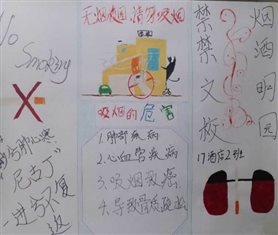 No
Smoking
无烟校园 请勿吸烟
吸烟的危害
1.肺部疾病
2.心血管疾病
3.吸烟致癌
4.导致骨质疏松
禁烟
禁酒
文明
校园
17酒店2班
尼古丁